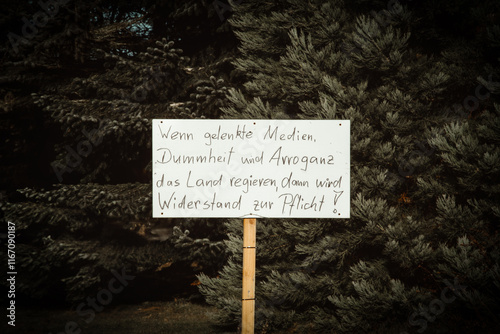 Wenn gelenkte Medien,
Dummheit und Arroganz
das Land regieren, dann wird
Widerstand zur Pflicht!
#1167090187